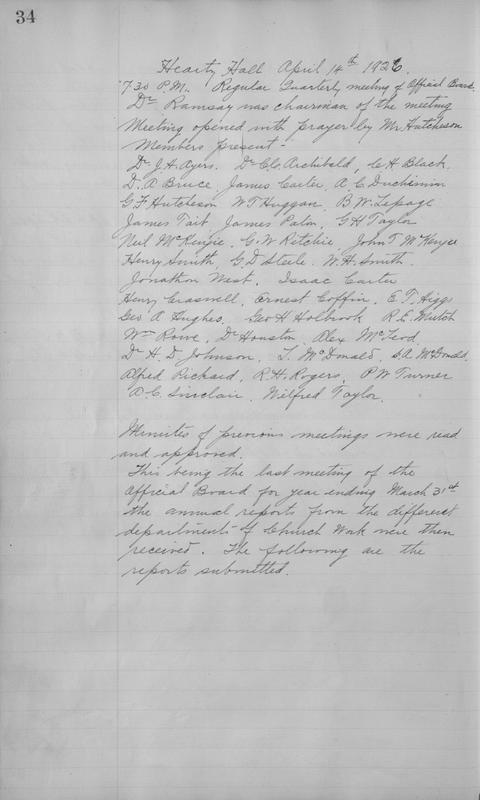 34
Hearty Hall April 14th 1926.
7.30 P.M. Regular Quarterly meeting of Official Board.
Dr Ramsay was chairman of the meeting
Meeting opened with prayer by Mr Hutcheson
Members present -
Dr J.H. Ayers. Dr Clo. Archibald, C H Black.
D. A Bruce, James Carter, A. C Duchemin
G F Hutcheson W T Huggan, B. W. Lepage
James Tait, James Paton, G H Taylor
Neil McKenzie, G. W Ritchie, John T McKenzie
Henry Smith, G. D Steele. W. H. Smith.
Jonathon West. Isaac Carter
Henry Craswell, Ernest Coffin, E. T. Higgs
Geo A Hughes. Geo H Holbrook R. E. Mutch
Wm Rowe, Dr Houston, Alex McLeod,
Dr H. D. Johnson, T. McDonald, S. A McDonald,
Alfred Pickard, R. H. Rogers, P W Turner
A. C. Sinclair, Wilfred Taylor.
Minutes of previous meetings were read
and approved.
This being the last meeting of the
Official Board for year ending March 31st
the annual reports from the different
departments of Church Work were then
received. The following are the
reports submitted.